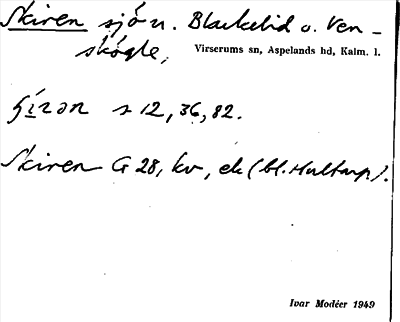 Skiren sjö n. Blackelid o. Ven-
skögle,
Virserums sn, Aspelands hd, Kalm. l.
s 12, 36, 82.
Skiren G 28, kv, ek (bl. Hultarp).
Ivar Modéer 1949